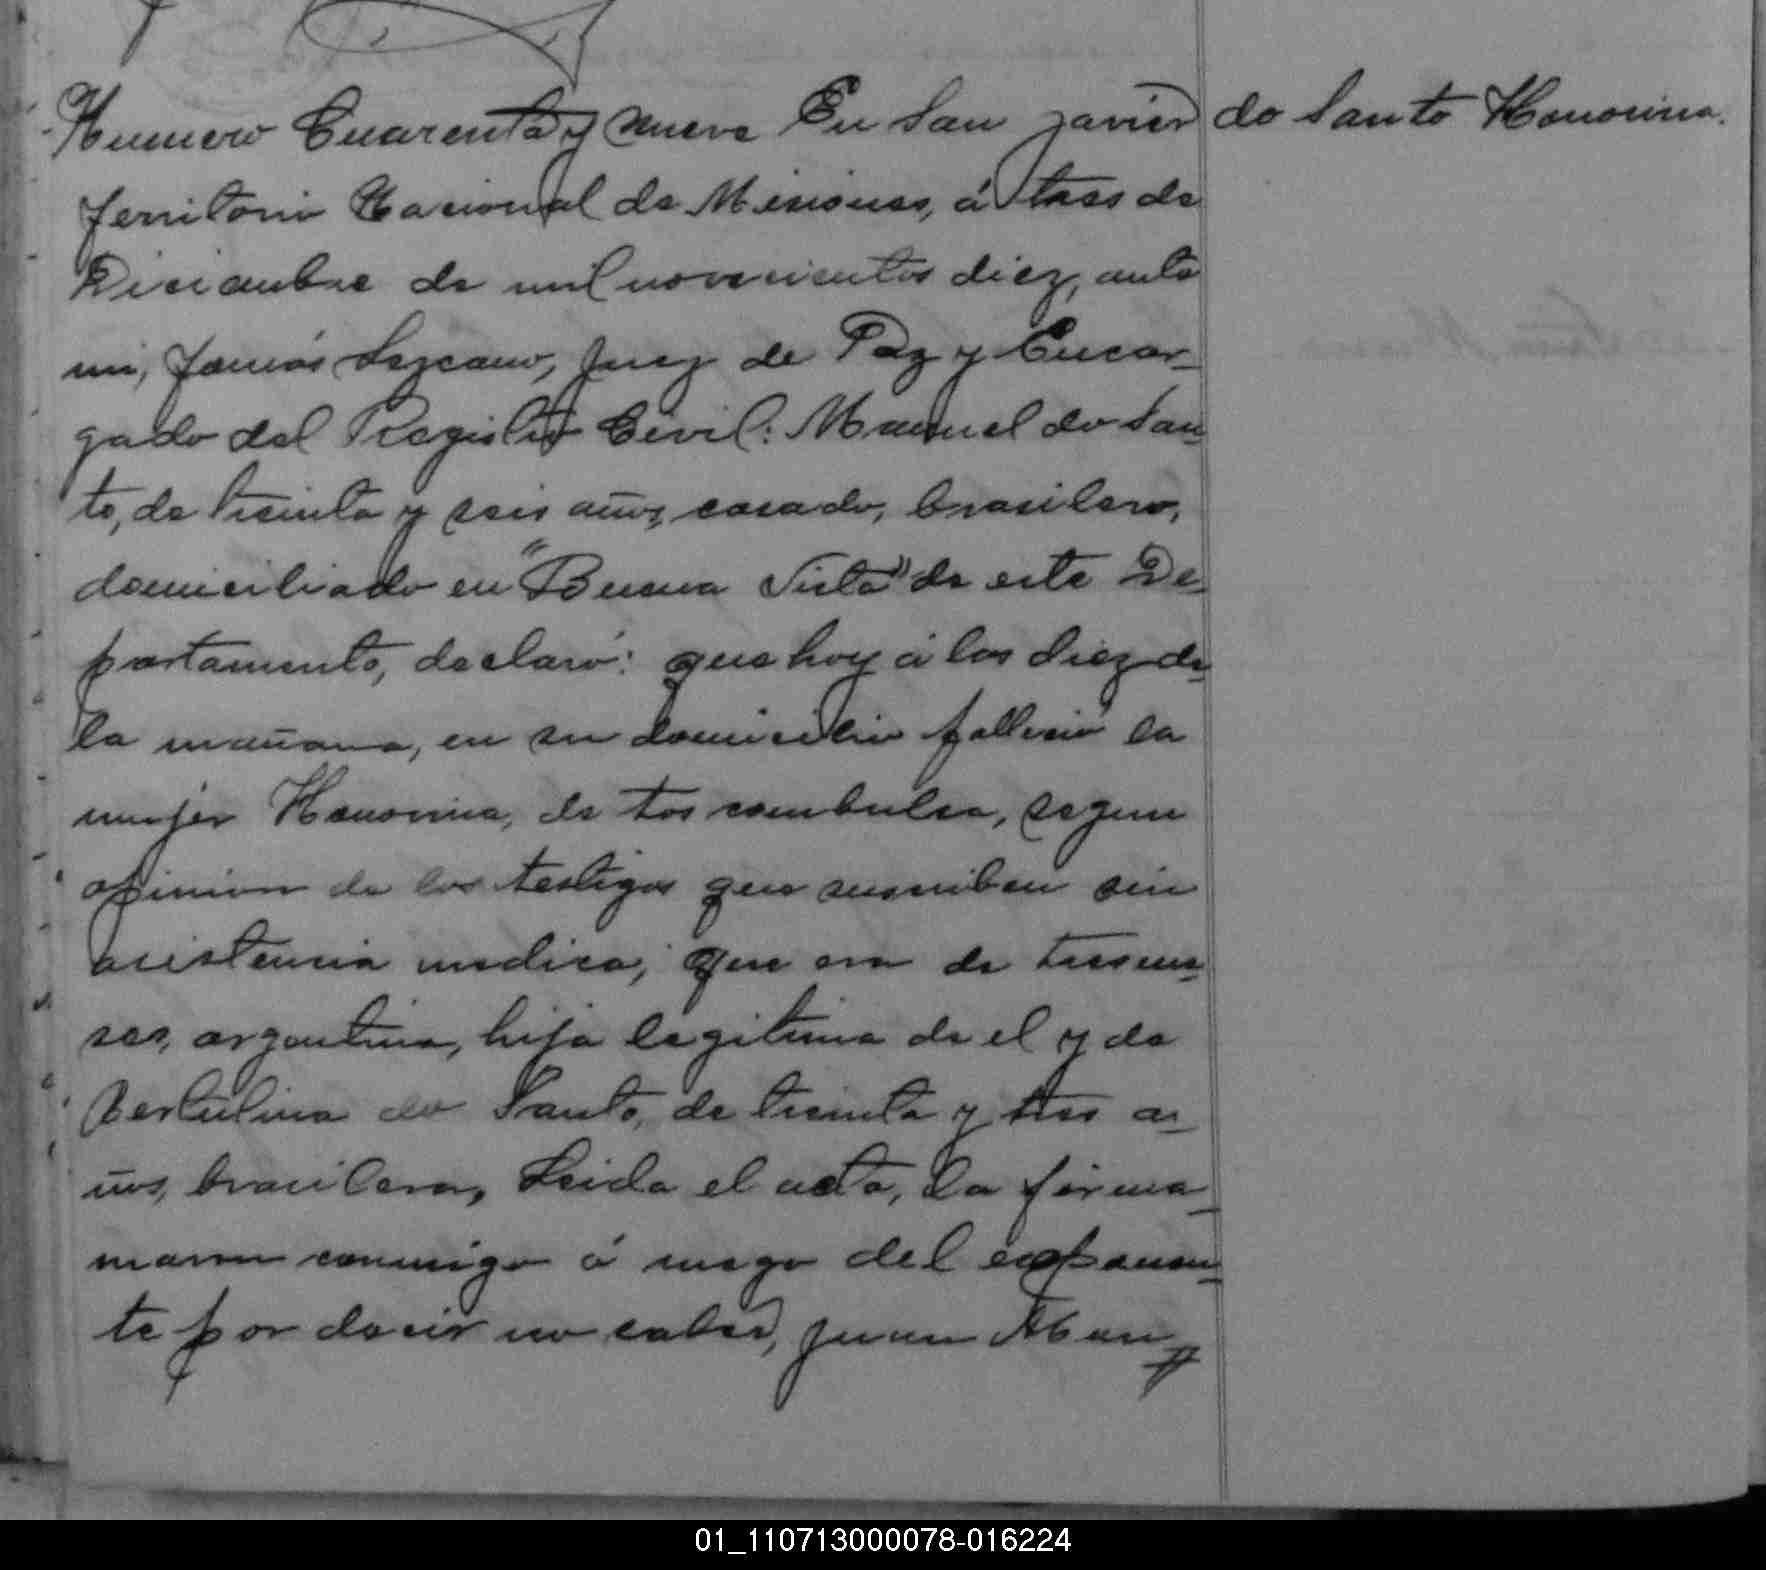 Numero Cuarenta y nueve En San Javier
do Santo Honorina.
Territorio Nacional de Misiones, á tres de
Diciembre de mil novecientos diez, ante
mi, Tomás Lezcano, Juez de Paz y Encar-
gado del Registro Civil: Manuel do San-
to, de treinta y seis años, casado, brasilero,
domiciliado en "Buena Vista" de este De-
partamento, declaró: que hoy á las diez de
la mañana, en su domicilio falleció la
mujer Honorina, de tos combulsa, segun
opinion de los testigos que suscriben sin
asistencia medica; que era de tres me-
ses, argentina, hija legitima de el y de
Bertulina do Santo, de treinta y tres a-
ños, brasilera, Leida el acta, la firma-
maron conmigo á ruego del exponen-
te por decir no saber, Juan
01_110713000078-016224